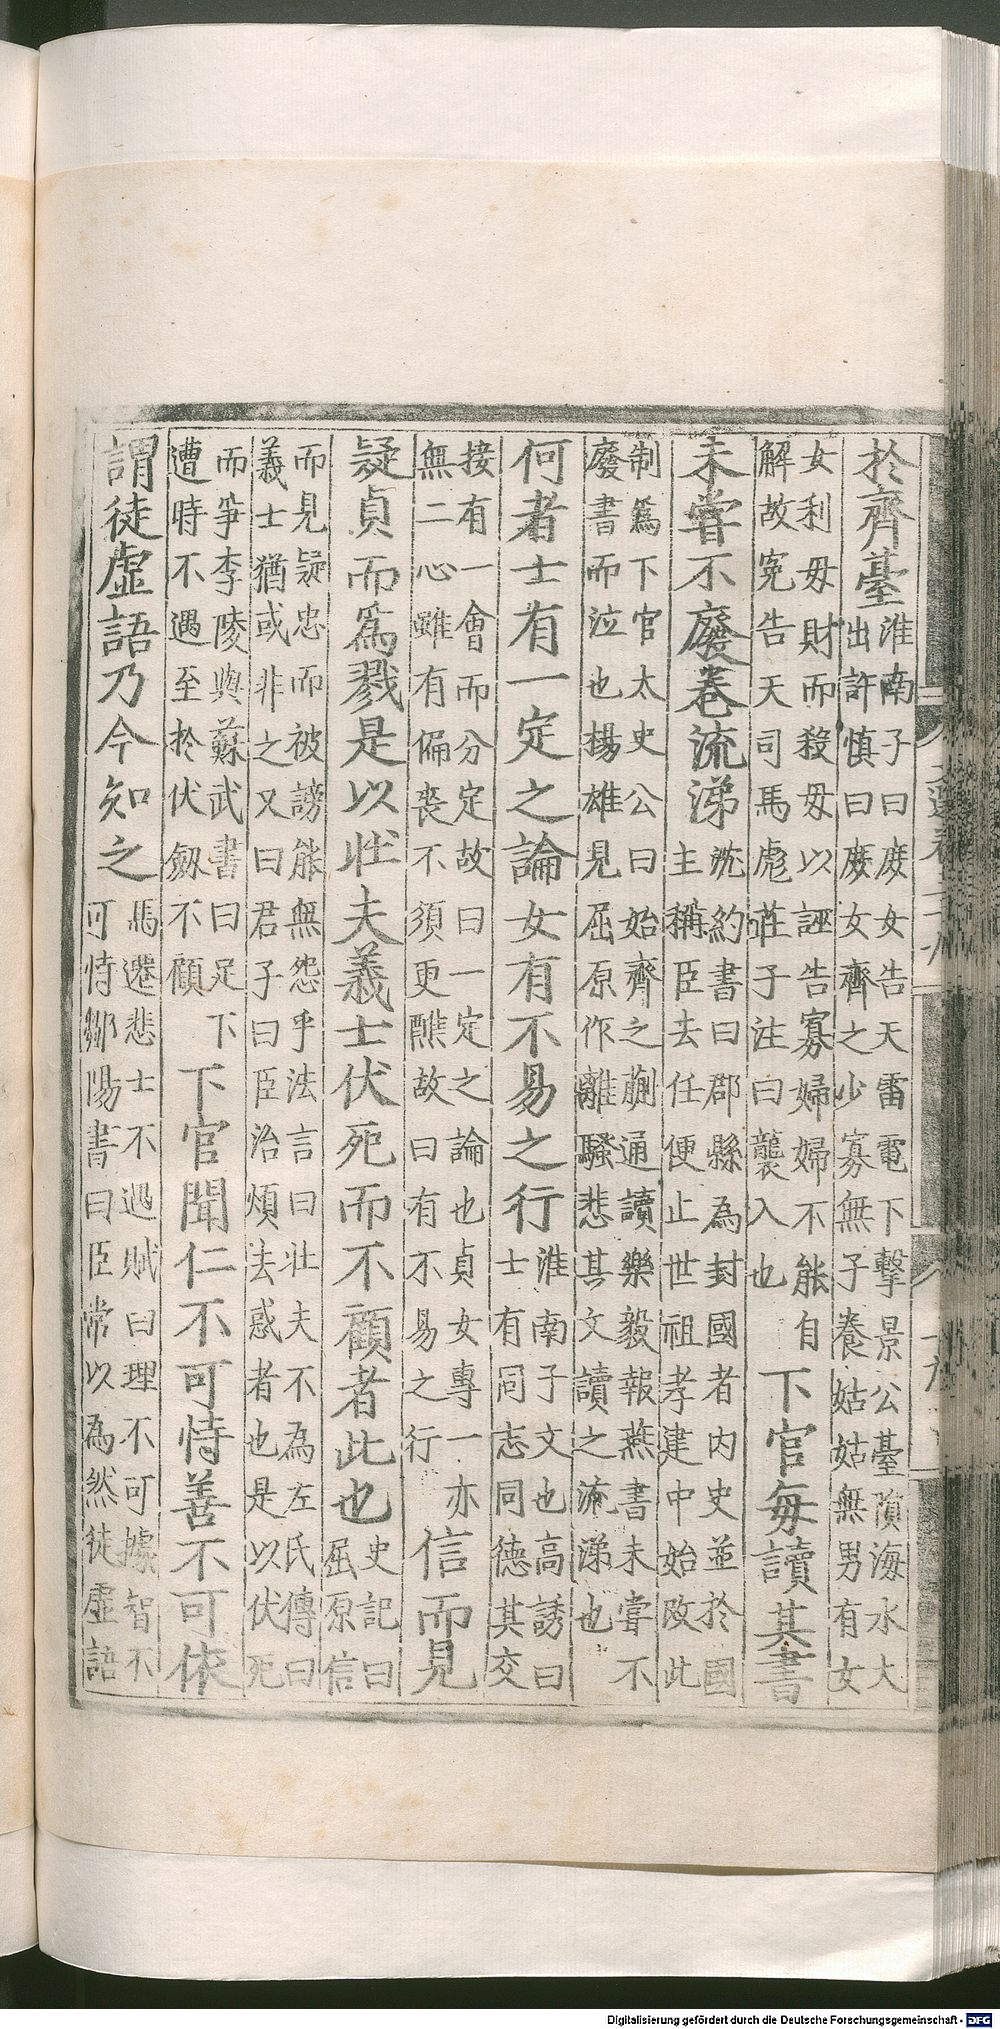 於齊臺淮南子曰庶女告天雷電下擊景公臺隕海水大
出許慎曰庶女齊之少寡無子養姑姑無男有女
女利毋財而殺毋以誣告寡婦婦不能自
解故寃告天司馬彪莊子注曰襲入也下官每讀其書
未甞不廢卷流涕沈約書曰郡縣為封國者内史並於國
主稱臣去任便止世祖孝建中始改此
制爲下官太史公曰始齊之蒯通讀樂毅報燕書未甞不
廢書而泣也楊雄見屈原作離騷悲其文讀之流涕也
何者士有一定之論女有不易之行淮南子文也高誘曰
士有同志同德其交
接有一會而分定故曰一定之論也貞女專一亦
無二心雖有偏喪不須更醮故曰有不易之行信而見
疑貞而爲戮是以壯夫義士伏死而不顧者此也史記曰
屈原信
而見疑忠而被謗能無怨乎法言曰壯夫不為左氏傳曰
義士猶或非之又曰君子曰臣治煩去惑者也是以伏死
而爭李陵與蘇武書曰足下
遭時不遇至於伏劔不顧下官聞仁不可恃善不可依
謂徒虛語乃今知之馬遷悲士不遇賦曰理不可據智不
可恃鄒陽書曰臣常以為然徒虛語
Digitalisierung gefördert durch die Deutsche Forschungsgemeinschaft - DFG